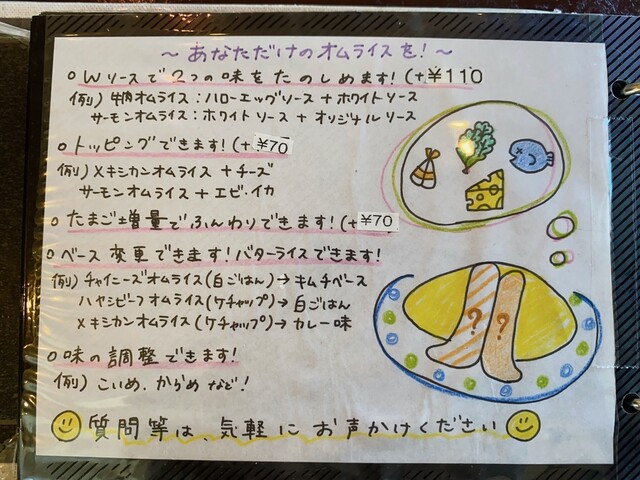 ～あなただけのオムライスを！～
○ Wソースで2つの味をたのしめます！(+¥110
例）牛肉オムライス：ハローエッグソース＋ホワイトソース
サーモンオムライス：ホワイトソース＋オリジナルソース
○ トッピングできます！(+¥70
例）メキシカンオムライス＋チーズ
サーモンオムライス＋エビ・イカ
○ たまご増量でふんわりできます！(+¥70
○ ベース変更できます！バターライスできます！
例）チャイニーズオムライス(白ごはん)→キムチベース
ハヤシビーフオムライス(ケチャップ)→白ごはん
メキシカンオムライス(ケチャップ)→カレー味
○ 味の調整できます！
例）こいめ、からめなど！
質問等は、気軽にお声かけください
? ?